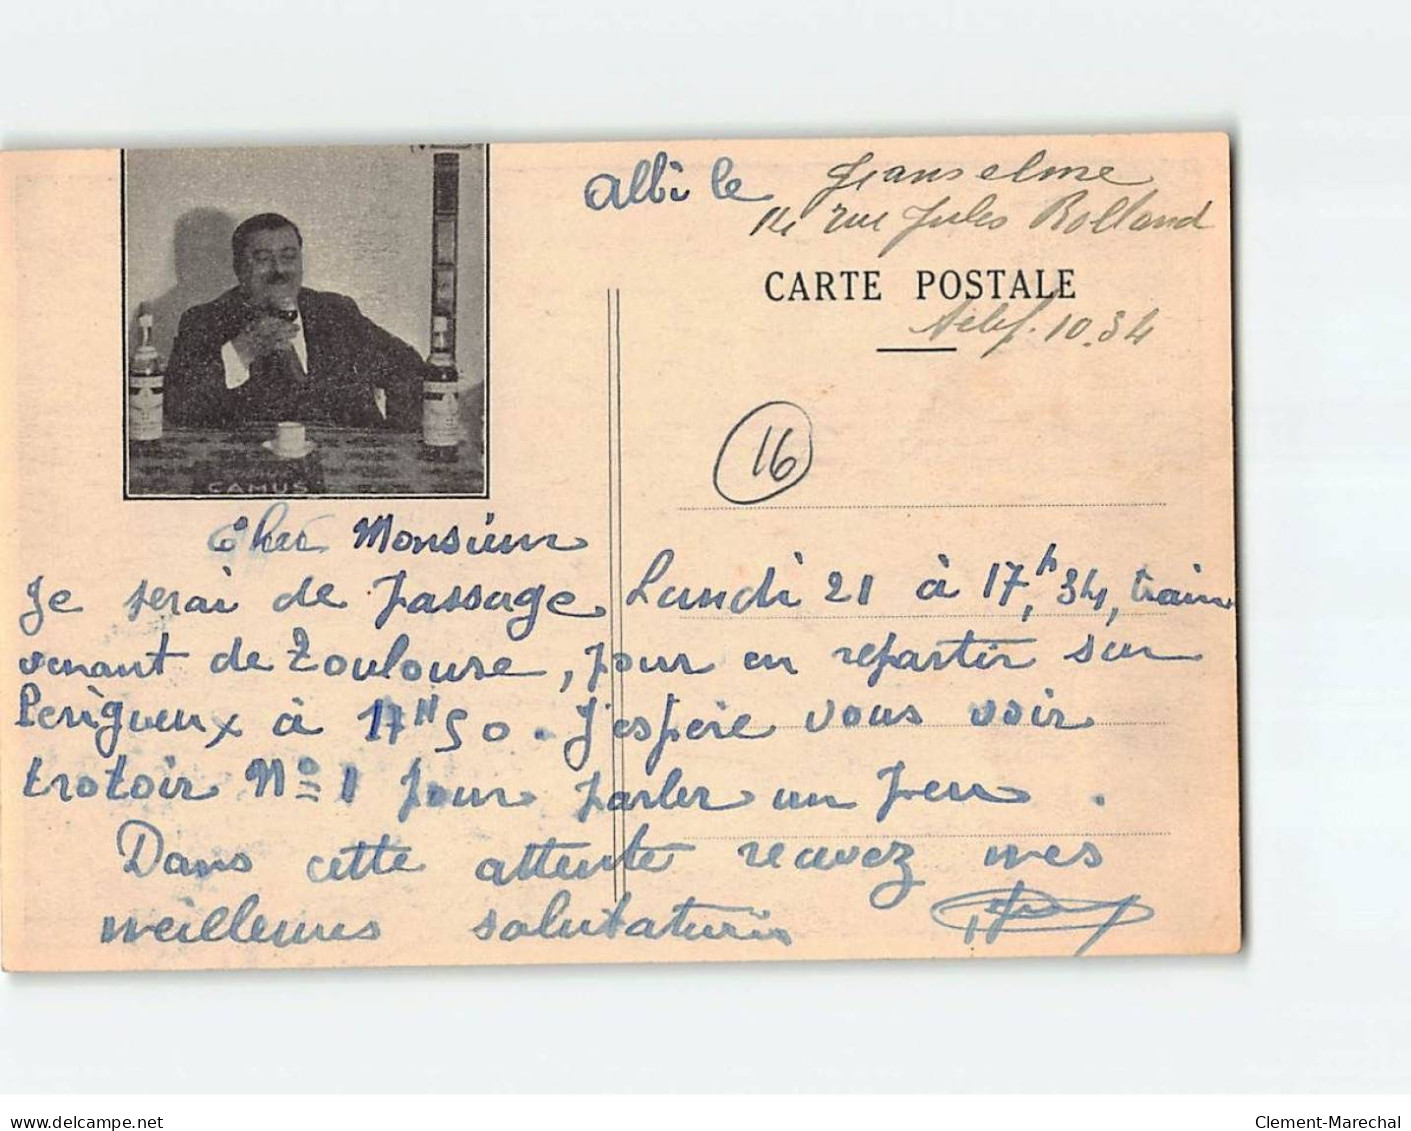 CAMUS
Albi le
Jeanselme
14 rue Jules Rolland
CARTE POSTALE
Telef. 10.34
16
Cher Monsieur
Je serai de passage Lundi 21 à 17h,34, train
venant de Toulouse, pour en repartir sur
Perigueux à 17H50. J'espère vous voir
trotoir No 1 pour parler un peu.
Dans cette attente recevez mes
meilleures salutations
www.delcampe.net
Clement-Marechal